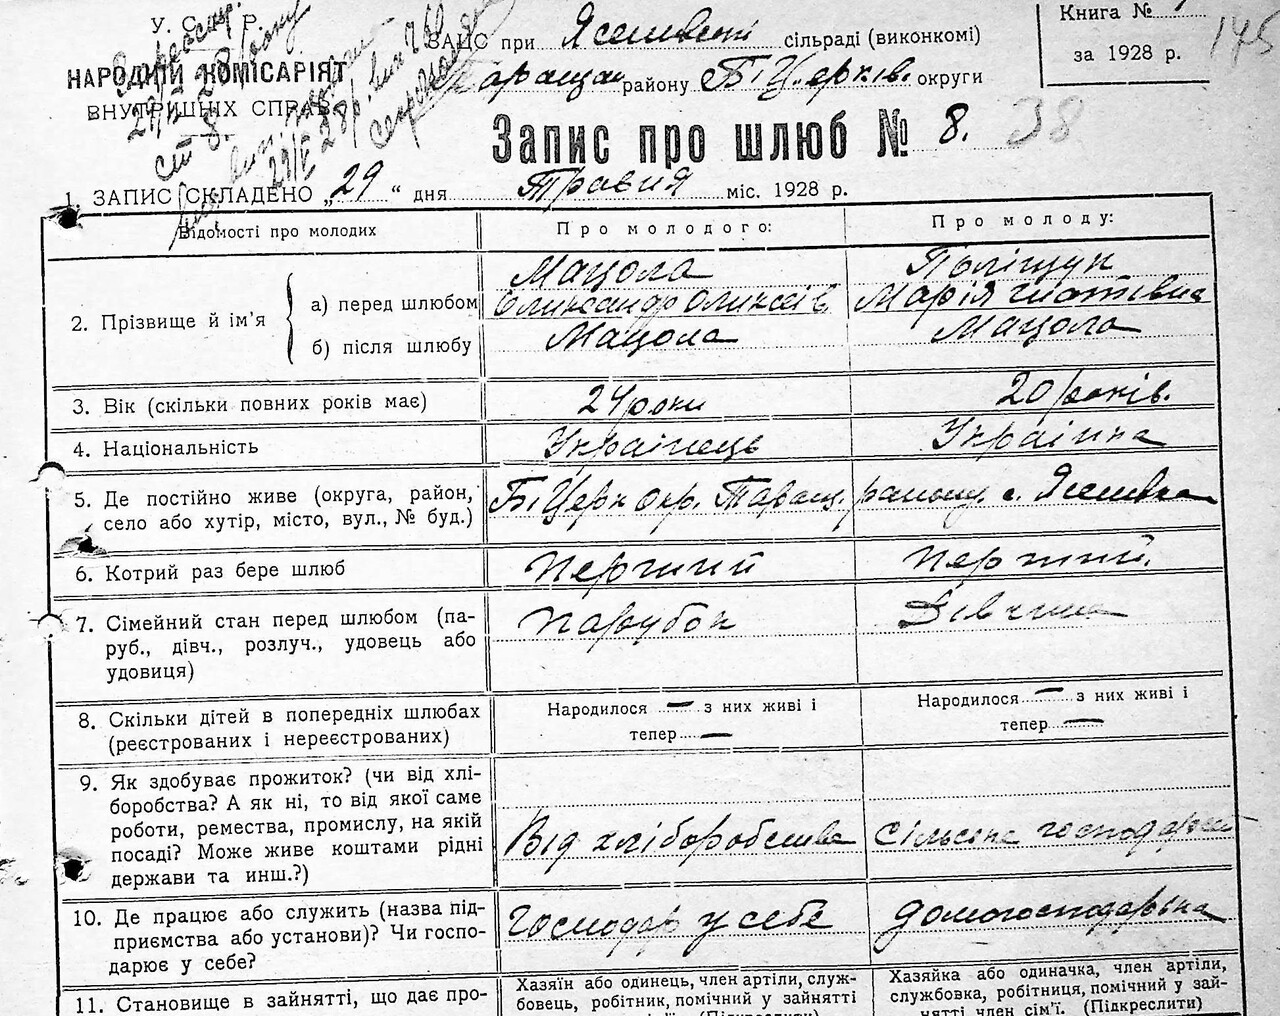 У. С. Р. Р.
НАРОДНІЙ КОМІСАРІЯТ
ВНУТРІШНІХ СПРАВ
ЗАГС при Ясешвеві сільраді (виконкомі)
Таращан району Б Церків. округи
Книга №
за 1928 р.
145
Запис про шлюб № 8.
38
1. ЗАПИС СКЛАДЕНО „29“ дня Травня міс. 1928 р.
Відомості про молодих
Про молодого:
Про молоду:
2. Прізвище й ім'я
а) перед шлюбом
Мацола
Олександр Олексіїв
Поліщук
Марія
б) після шлюбу
Мацола
Мацола
3. Вік (скільки повних років має)
24 роки
20 років.
4. Національність
Українець
Українка
5. Де постійно живе (округа, район, село або хутір, місто, вул., № буд.)
БЦерк окр. Таращ. району с.
6. Котрий раз бере шлюб
Перший
Перший.
7. Сімейний стан перед шлюбом (па-
руб., дівч., розлуч., удовець або
удовиця)
Парубок
Дівчина
8. Скільки дітей в попередніх шлюбах
(реєстрованих і нереєстрованих)
Народилося — з них живі і
тепер —
Народилося — з них живі і
тепер —
9. Як здобуває прожиток? (чи від хлі-
боробства? А як ні, то від якої саме
роботи, ремества, промислу, на якій
посаді? Може живе коштами рідні
держави та инш.?)
Від хліборобства
Сільське господарство
10. Де працює або служить (назва під-
приємства або установи)? Чи госпо-
дарює у себе?
Господар у себе
домогосподарька
11. Становище в зайнятті, що дає про-
Хазяїн або одинець, член артіли, служ-
бовець, робітник, помічний у зайнятті
(Підкреслити)
Хазяйка або одиначка, член артіли,
службовка, робітниця, помічний у зай-
нятті член сім'ї. (Підкреслити)